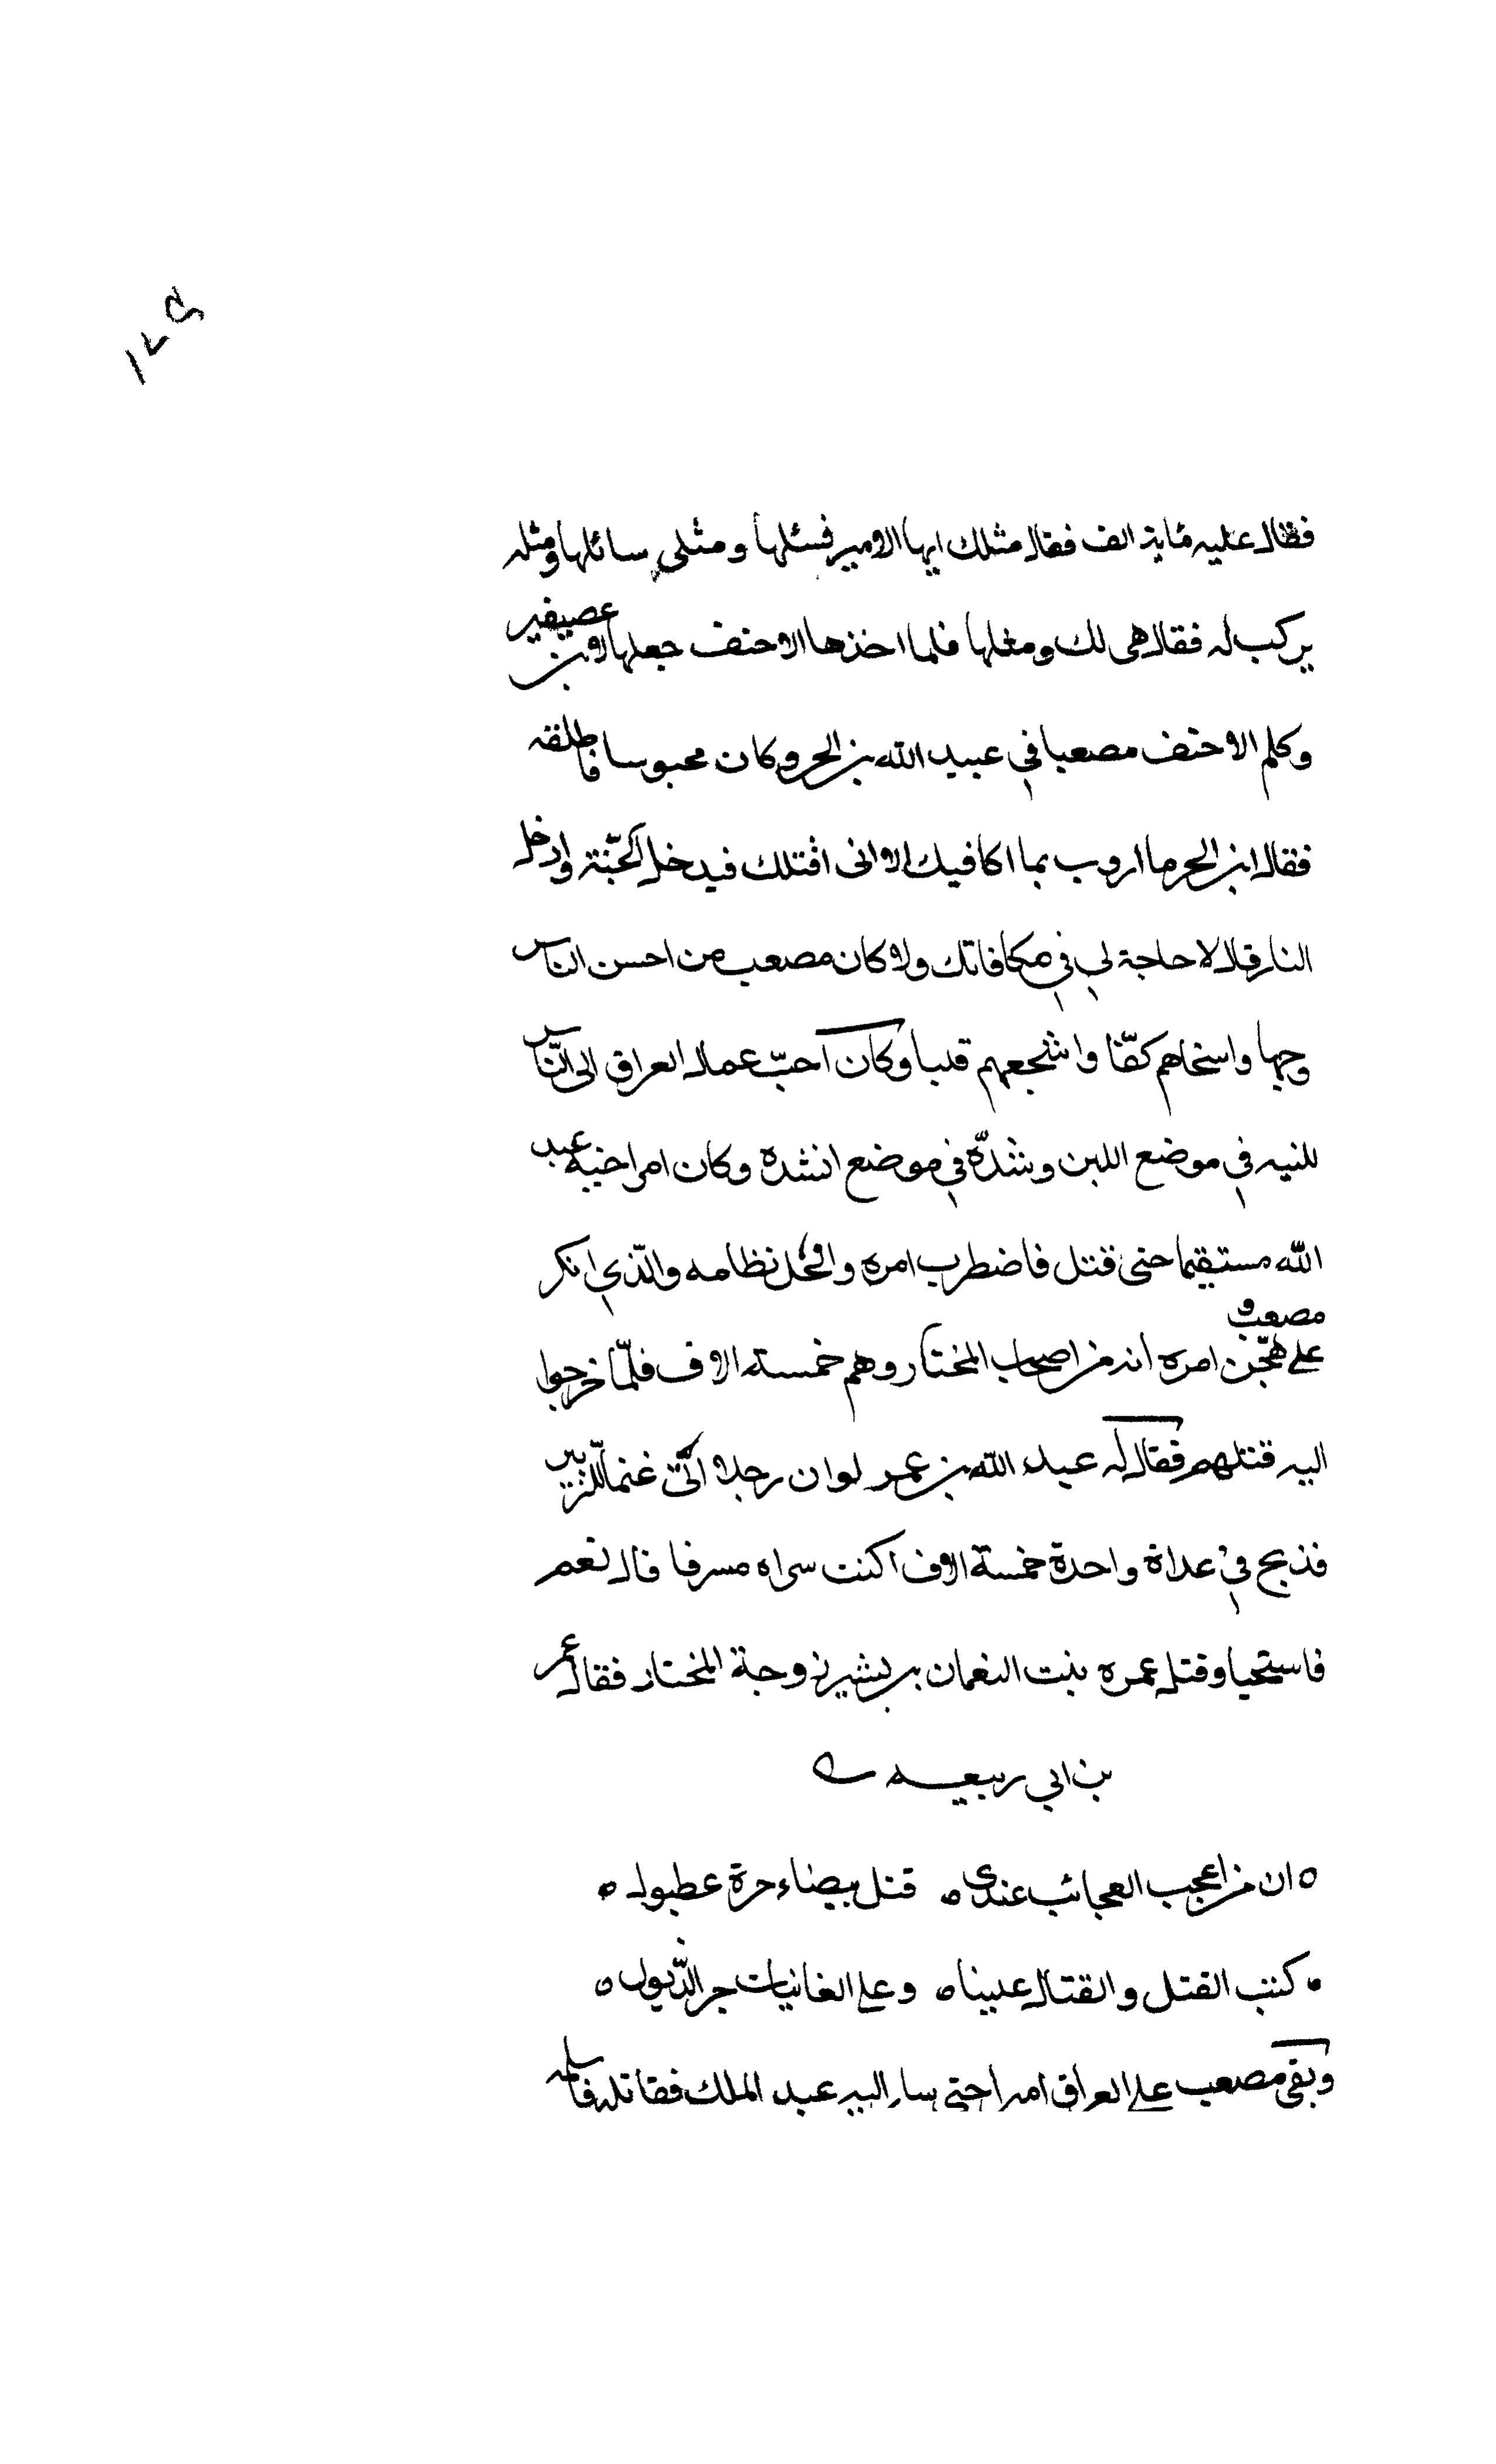 ١٧٥
فقال عليه مائة الف فقال مثلك ايها الامير فسئلها ومثلي سائلها ومثله
يركب له فقال هي لك ومثلها فلما اخذها الاحنف جعلها لابن عصيفير
وكلم الاحنف مصعبا في عبيد الله بن الحر وكان محبوسا فاطلقه
فقال ابن الحر ما اروب بما اكافيك الا اني اقتلك فيدخل الجنة وادخل
النار قال لا حاجة لي في مكافاتك ولا كان مصعب من احسن الناس
وجها واسخاهم كفّا واشجعهم قلبا وكان احبّ عمال العراق الى النّاس
للنيه في موضع اللين وشدّه في موضع الشده وكان امر اخيه عبد
الله مستقيما حتى قتل فاضطرب امره وانحل نظامه والّذي انكر
على مصعب وهجّن امره انه من اصحاب المختار وهم خمسة الاف فلمّا خرجوا
اليه قتلهم فقال له عبد الله بن عمر لو ان رجلا اتى غنما للزّبير
فذبح في غداة واحدة خمسة الاف اكنت سراه مسرفا قال نعم
فاستحيا وقتل عمره بنت النعمان بن بشير زوجة المختار فقال عمر
بن ابي ربيعه
ان من اعجب العجائب عندي قتل بيضاء حرة عطبول
كتب القتل والقتال علينا وعلى الغانيات جر الذّيول
وبقي مصعب على العراق امرا حتى سار اليه عبد الملك فقاتله فاسلمه